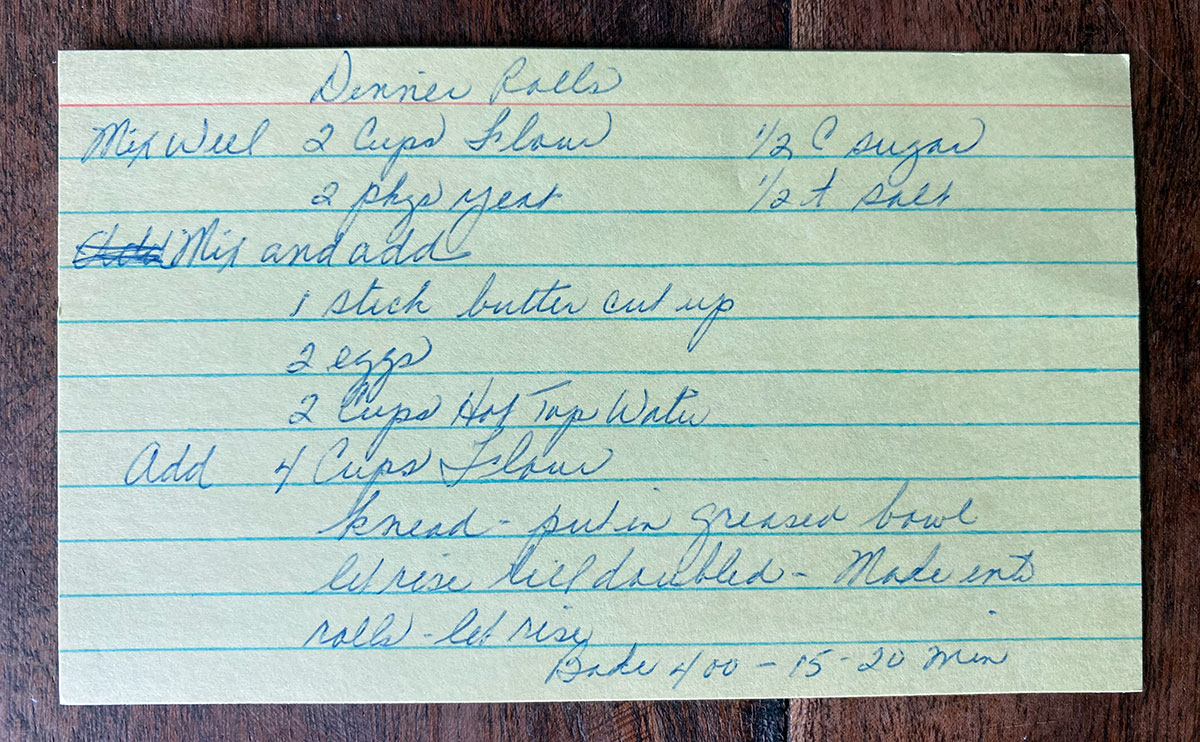 Dinner Rolls
Mix Well 2 Cups Flour 1/2 C sugar
2 pkgs yeast 1/2 t salt
Mix and add
1 stick butter cut up
2 eggs
2 Cups Hot Tap Water
Add 4 Cups Flour
knead - put in greased bowl
let rise till doubled - Made into
rolls - let rise
Bake 400 - 15 - 20 min